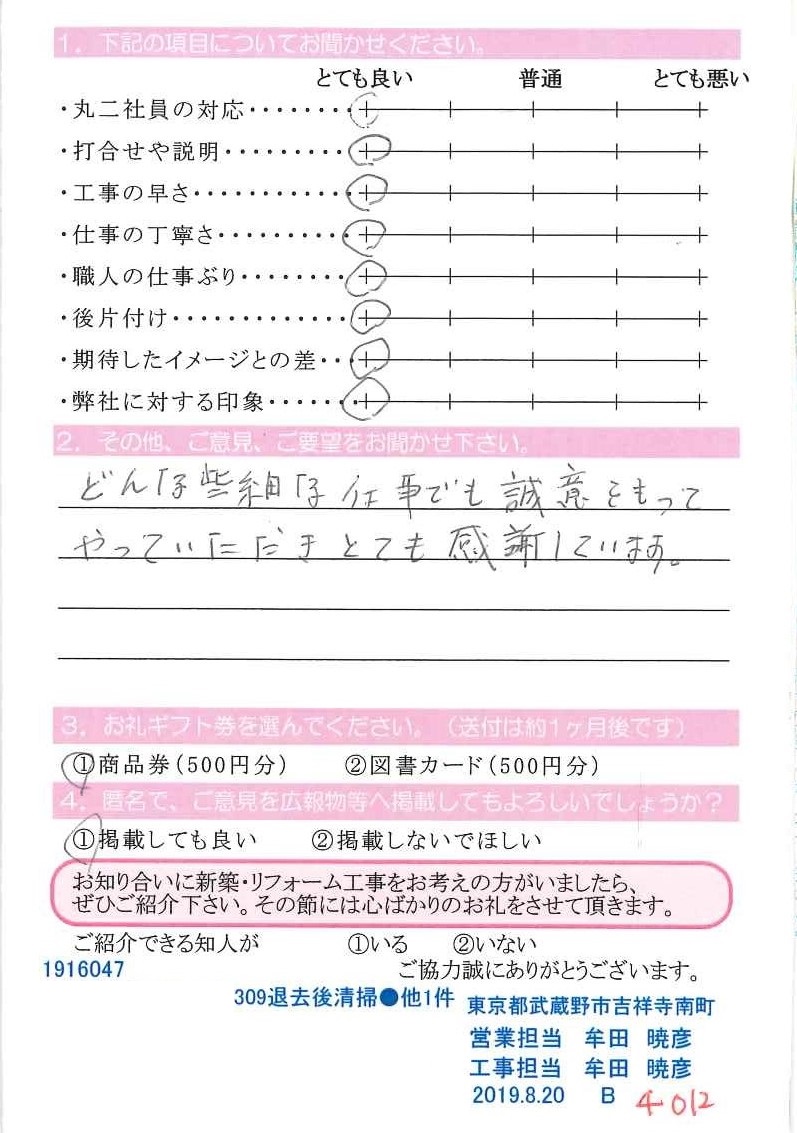 1. 下記の項目についてお聞かせください。
とても良い 普通 とても悪い
・丸二社員の対応・・・・・・・・
・打合せや説明・・・・・・・・・
・工事の早さ・・・・・・・・・・・
・仕事の丁寧さ・・・・・・・・・
・職人の仕事ぶり・・・・・・・・
・後片付け・・・・・・・・・・・・・
・期待したイメージとの差・・・
・弊社に対する印象・・・・・・・
2. その他、ご意見、ご要望をお聞かせ下さい。
どんな些細な仕事でも誠意をもって
やっていただきとても感謝しています。
3. お礼ギフト券を選んでください。（送付は約1ヶ月後です）
①商品券（500円分） ②図書カード（500円分）
4. 匿名で、ご意見を広報物等へ掲載してもよろしいでしょうか？
①掲載しても良い ②掲載しないでほしい
お知り合いに新築・リフォーム工事をお考えの方がいましたら、
ぜひご紹介下さい。その節には心ばかりのお礼をさせて頂きます。
ご紹介できる知人が ①いる ②いない
1916047 ご協力誠にありがとうございます。
309退去後清掃●他1件 東京都武蔵野市吉祥寺南町
営業担当 牟田 暁彦
工事担当 牟田 暁彦
2019.8.20 B 4012